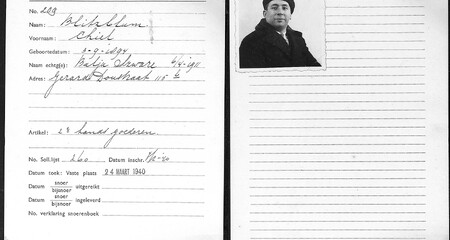 No. 209
Naam: Blitzblum
Voornaam: Chiel
Geboortedatum: 9-9-1894
Naam echtg(e): 6/4-1911
Adres: Gerard Doustraat 115
Artikel: 2e hands goederen.
No. Soll.lijst 260 Datum inschr.
Datum toek: Vaste plaats 24 MAART 1940
Datum snoer bijsnoer uitgereikt
Datum snoer bijsnoer ingeleverd
No. verklaring snoerenboek